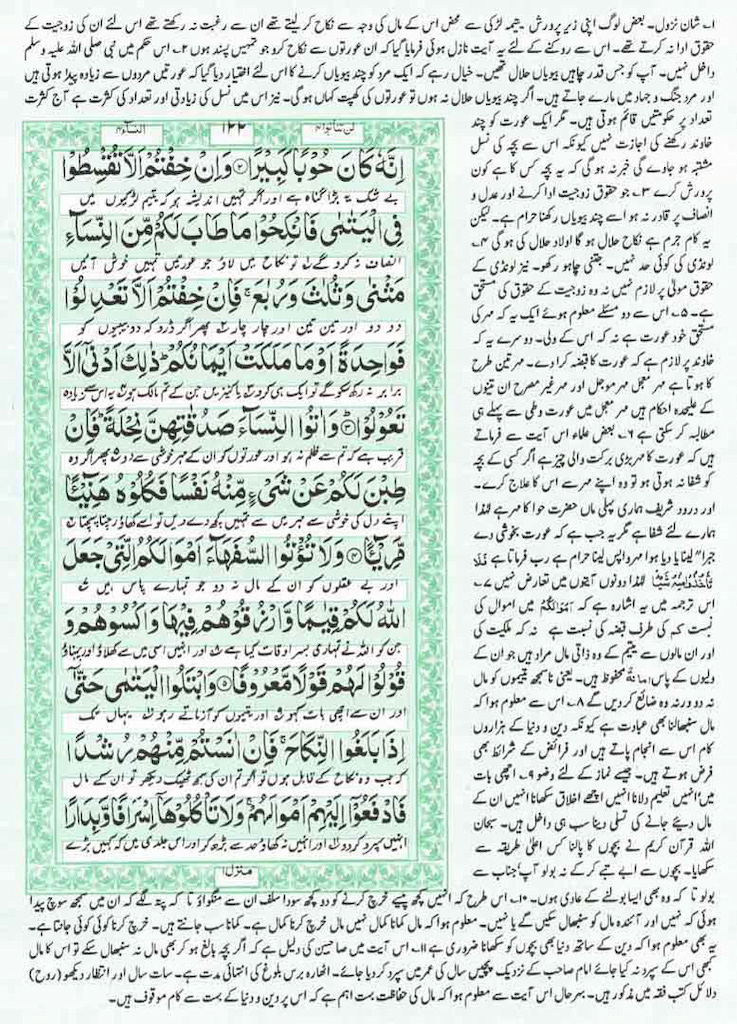 ۱۔ شان نزول۔ بعض لوگ اپنی زیر پرورش یتیمہ لڑکی سے محض اس کے مال کی وجہ سے نکاح کر لیتے تھے ان سے رغبت نہ رکھتے تھے اس لئے ان کی زوجیت کے
حقوق ادا نہ کرتے تھے۔ اس سے روکنے کے لئے یہ آیت نازل ہوئی فرمایا گیا کہ ان عورتوں سے نکاح کرو جو تمہیں پسند ہوں ۲۔ اس حکم میں نبی صلی اللہ علیہ وسلم
داخل نہیں۔ آپ کو جس قدر چاہیں بیویاں حلال تھیں۔ خیال رہے کہ ایک مرد کو چند بیویاں کرنے کا اس لئے اختیار دیا گیا کہ عورتیں مردوں سے زیادہ پیدا ہوتی ہیں
اور مرد جنگ و جہاد میں مارے جاتے ہیں۔ اگر چند بیویاں حلال نہ ہوں تو عورتوں کی کھپت کہاں ہو گی۔ نیز اس میں نسل کی زیادتی اور تعداد کی کثرت ہے آج کثرت
تعداد پر حکومتیں قائم ہوتی ہیں۔ مگر ایک عورت کو چند
خاوند رکھنے کی اجازت نہیں کیونکہ اس سے بچہ کی نسل
مشتبہ ہو جاوے گی خبر نہ ہو گی کہ یہ بچہ کس کا ہے کون
پرورش کرے ۳۔ جو حقوق زوجیت ادا کرنے اور عدل و
انصاف پر قادر نہ ہو اسے چند بیویاں رکھنا حرام ہے۔ لیکن
یہ کام جرم ہے نکاح حلال ہو گا اولاد حلال کی ہو گی ۴۔
لونڈی کی کوئی حد نہیں۔ جتنی چاہو رکھو۔ نیز لونڈی کے
حقوق مولٰی پر لازم نہیں نہ وہ زوجیت کے حقوق کی مستحق
ہے۔ ۵۔ اس سے دو مسئلے معلوم ہوئے ایک یہ کہ مہر کی
مستحق خود عورت ہے نہ کہ اس کے ولی۔ دوسرے یہ کہ
خاوند پر لازم ہے کہ عورت کا قبضہ کرا دے۔ مہر تین طرح
کا ہوتا ہے مہر معجل مہر موجل اور مہر غیر مصرح ان تینوں
کے علیحدہ احکام ہیں مہر معجل میں عورت وطی سے پہلے ہی
مطالبہ کر سکتی ہے ۶۔ بعض علماء اس آیت سے فرماتے
ہیں کہ عورت کا مہر بڑی برکت والی چیز ہے اگر کسی کے بچہ
کو شفا نہ ہوتی ہو تو وہ اپنے مہر سے اس کا علاج کرے۔
اور درود شریف ہماری پہلی ماں حضرت حوا کا مہر ہے لہٰذا
ہمارے لئے شفا ہے مگر یہ جب ہے کہ عورت بخوشی دے
جبراً لینا یا دیا ہوا مہر واپس لینا حرام ہے رب فرماتا ہے فَلَا
تَأْخُذُوْا مِنْهُ شَيْئًا لہٰذا دونوں آیتوں میں تعارض نہیں ۷۔
اس ترجمہ میں یہ اشارہ ہے کہ اَمْوَالَكُمُ میں اموال کی
نسبت کم کی طرف قبضہ کی نسبت ہے نہ کہ ملکیت کی
اور ان مالوں سے یتیم کے وہ ذاتی مال مراد ہیں جو ان کے
ولیوں کے پاس امانۃً محفوظ ہیں۔ یعنی ناسمجھ یتیموں کو مال
نہ دو ورنہ وہ ضائع کر دیں گے ۸۔ اس سے معلوم ہوا کہ
مال سنبھالنا بھی عبادت ہے کیونکہ دین و دنیا کے ہزاروں
کام اس سے انجام پاتے ہیں اور فرائض کے شرائط بھی
فرض ہوتے ہیں۔ جیسے نماز کے لئے وضو ۹۔ اچھی بات
میں انہیں تعلیم دلانا انہیں اچھے اخلاق سکھانا انہیں ان کے
مال دیئے جانے کی تسلی دینا سب ہی داخل ہیں۔ سبحان
اللہ قرآن کریم نے بچوں کا پالنا کس اعلٰی طریقہ سے
سکھایا۔ بچوں سے ابے تبے کر کے نہ بولو آپ جناب سے
النسآء۴
۱۲۲
لن تنالوا۴
اِنَّهٗ كَانَ حُوْبًا كَبِيْرًا۝۲ وَاِنْ خِفْتُمْ اَلَّا تُقْسِطُوْا
بے شک یہ بڑا گناہ ہے اور اگر تمہیں اندیشہ ہو کہ یتیم لڑکیوں میں
فِى الْيَتٰمٰى فَانْكِحُوْا مَا طَابَ لَكُمْ مِّنَ النِّسَآءِ
انصاف نہ کرو گے تو نکاح میں لاؤ جو عورتیں تمہیں خوش آئیں
مَثْنٰى وَثُلٰثَ وَرُبٰعَ ۚ فَاِنْ خِفْتُمْ اَلَّا تَعْدِلُوْا
دو دو اور تین تین اور چار چار پھر اگر ڈرو کہ دو بیبیوں کو
فَوَاحِدَةً اَوْ مَا مَلَكَتْ اَيْمَانُكُمْ ؕ ذٰلِكَ اَدْنٰۤى اَلَّا
برابر نہ رکھ سکو گے تو ایک ہی کرو یا کنیزیں جن کے تم مالک ہو یہ اس سے زیادہ
تَعُوْلُوْا۝۳ وَاٰتُوا النِّسَآءَ صَدُقٰتِهِنَّ نِحْلَةً ؕ فَاِنْ
قریب ہے کہ تم سے ظلم نہ ہو اور عورتوں کو ان کے مہر خوشی سے دو پھر اگر وہ
طِبْنَ لَكُمْ عَنْ شَىْءٍ مِّنْهُ نَفْسًا فَكُلُوْهُ هَنِيْٓـــًٔا
اپنے دل کی خوشی سے مہر میں سے تمہیں کچھ دے دیں تو اسے کھاؤ رچتا پچتا
مَّرِيْٓـــًٔا۝۴ وَلَا تُؤْتُوا السُّفَهَآءَ اَمْوَالَكُمُ الَّتِىْ جَعَلَ
اور بے عقلوں کو ان کے مال نہ دو جو تمہارے پاس ہیں
اللّٰهُ لَكُمْ قِيٰمًا وَّارْزُقُوْهُمْ فِيْهَا وَاكْسُوْهُمْ وَ
جن کو اللہ نے تمہاری بسر اوقات کیا ہے اور انہیں اس میں سے کھلاؤ اور پہناؤ
قُوْلُوْا لَهُمْ قَوْلًا مَّعْرُوْفًا۝۵ وَابْتَلُوا الْيَتٰمٰى حَتّٰۤى
اور ان سے اچھی بات کہو اور یتیموں کو آزماتے رہو یہاں تک
اِذَا بَلَغُوا النِّكَاحَ ۚ فَاِنْ اٰنَسْتُمْ مِّنْهُمْ رُشْدًا
کہ جب وہ نکاح کے قابل ہوں تو اگر تم ان کی سمجھ ٹھیک دیکھو تو ان کے مال
فَادْفَعُوْۤا اِلَيْهِمْ اَمْوَالَهُمْ ۚ وَلَا تَاْكُلُوْهَاۤ اِسْرَافًا وَّبِدَارًا
انہیں سپرد کر دو اور انہیں نہ کھاؤ حد سے بڑھ کر اور اس جلدی میں کہ کہیں بڑے
منزل۱
بولو تاکہ وہ بھی ایسا بولنے کے عادی ہوں۔ ۱۰۔ اس طرح کہ انہیں کچھ پیسے خرچ کرنے کو دو کچھ سودا سلف ان سے منگواؤ تاکہ پتہ لگے کہ ان میں سمجھ سوچ پیدا
ہوئی کہ نہیں اور آئندہ مال کو سنبھال سکیں گے یا نہیں۔ معلوم ہوا کہ مال کمانا کمال نہیں مال خرچ کرنا کمال ہے۔ کمانا سب جانتے ہیں۔ خرچ کرنا کوئی کوئی جانتا ہے۔
یہ بھی معلوم ہوا کہ دین کے ساتھ دنیا بھی بچوں کو سکھانا ضروری ہے ۱۱۔ اس آیت میں صاحبین کی دلیل ہے کہ اگر بچہ بالغ ہو کر بھی مال نہ سنبھال سکے تو اس کا مال
کبھی اس کے سپرد نہ کیا جائے امام صاحب کے نزدیک پچیس سال کی عمر میں سپرد کر دیا جائے۔ اٹھارہ برس بلوغ کی انتہائی مدت ہے۔ سات سال اور انتظار دیکھو (روح)
دلائل کتب فقہ میں مذکور ہیں۔ بہرحال اس آیت سے معلوم ہوا کہ مال کی حفاظت بہت اہم ہے کہ اس پر دین و دنیا کے بہت سے کام موقوف ہیں۔